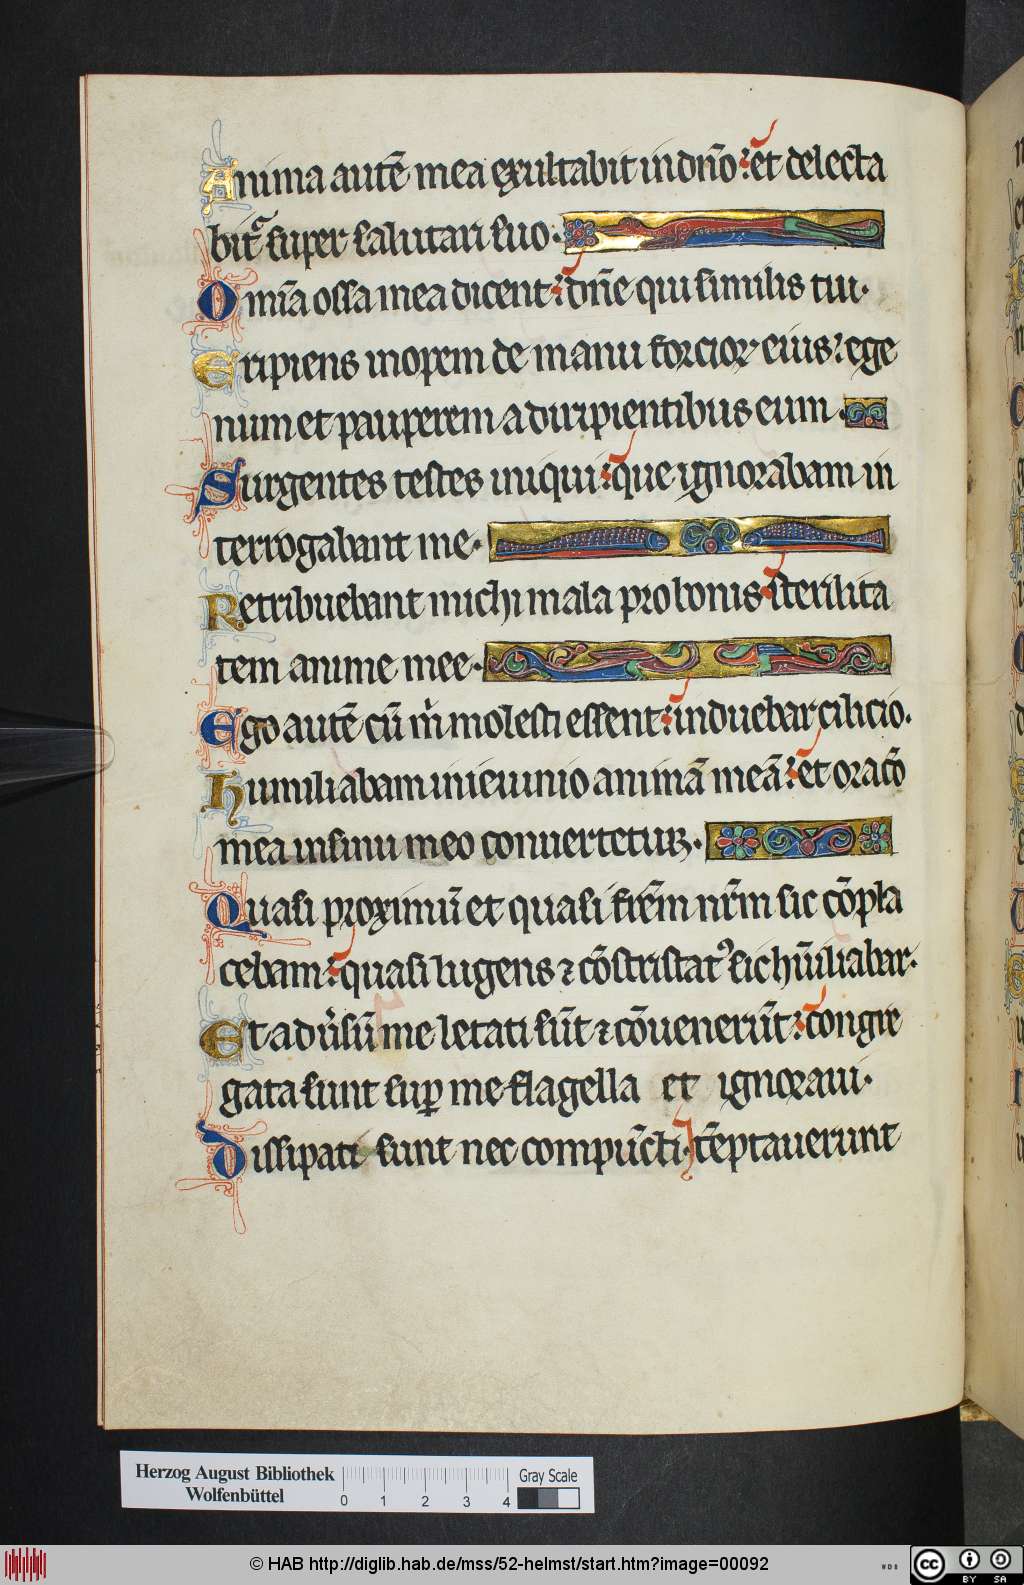 Anima autē mea exultabit in dn̄o ⁊ et delecta
bit᷑ super salutari suo.
Om̄ia ossa mea dicent dn̄e quis similis tui.
Eripiens inopem de manu forcior eius ege
num et pauperem a diripientibus eum.
Surgentes testes iniqui que ignorabam in
terrogabant me.
Retribuebant michi mala pro bonis sterilita
tem anime mee.
Ego autē cū m̄ molesti essent induebar cilicio.
Humiliabam in ieiunio animā meā et orac̄o
mea in sinu meo conuertetur.
Quasi proximū et quasi fr̄em nr̄m sic cōpla
cebam quasi lugens ⁊ cōtristatꝰ sic hūiliabar.
Et adūsū me letati sūt ⁊ cōuenerūt congre
gata sunt suꝑ me flagella et ignoraui.
Dissipati sunt nec compūcti tēptauerunt
Herzog August Bibliothek
Wolfenbüttel
0 1 2 3 4
Gray Scale
© HAB http://diglib.hab.de/mss/52-helmst/start.htm?image=00092
cc BY SA